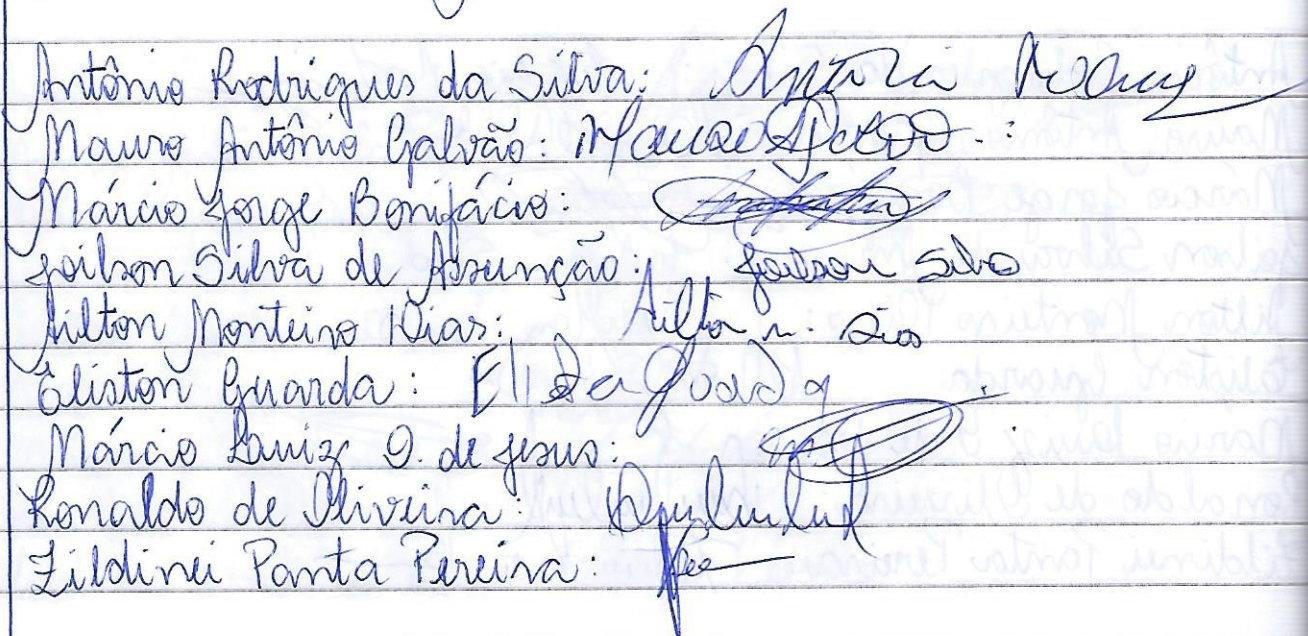 Antônio Rodrigues da Silva: Antonio Rodrig
Mauro Antônio Galvão: Mauro
Márcio Jorge Bonifácio:
Joilson Silva de Assunção: Joilson Silva
Ailton Monteiro Dias: Ailton m. Dias
Êliston Guarda:
Márcio Luiz O. de Jesus:
Ronaldo de Oliveira:
Zildinei Panta Pereira: